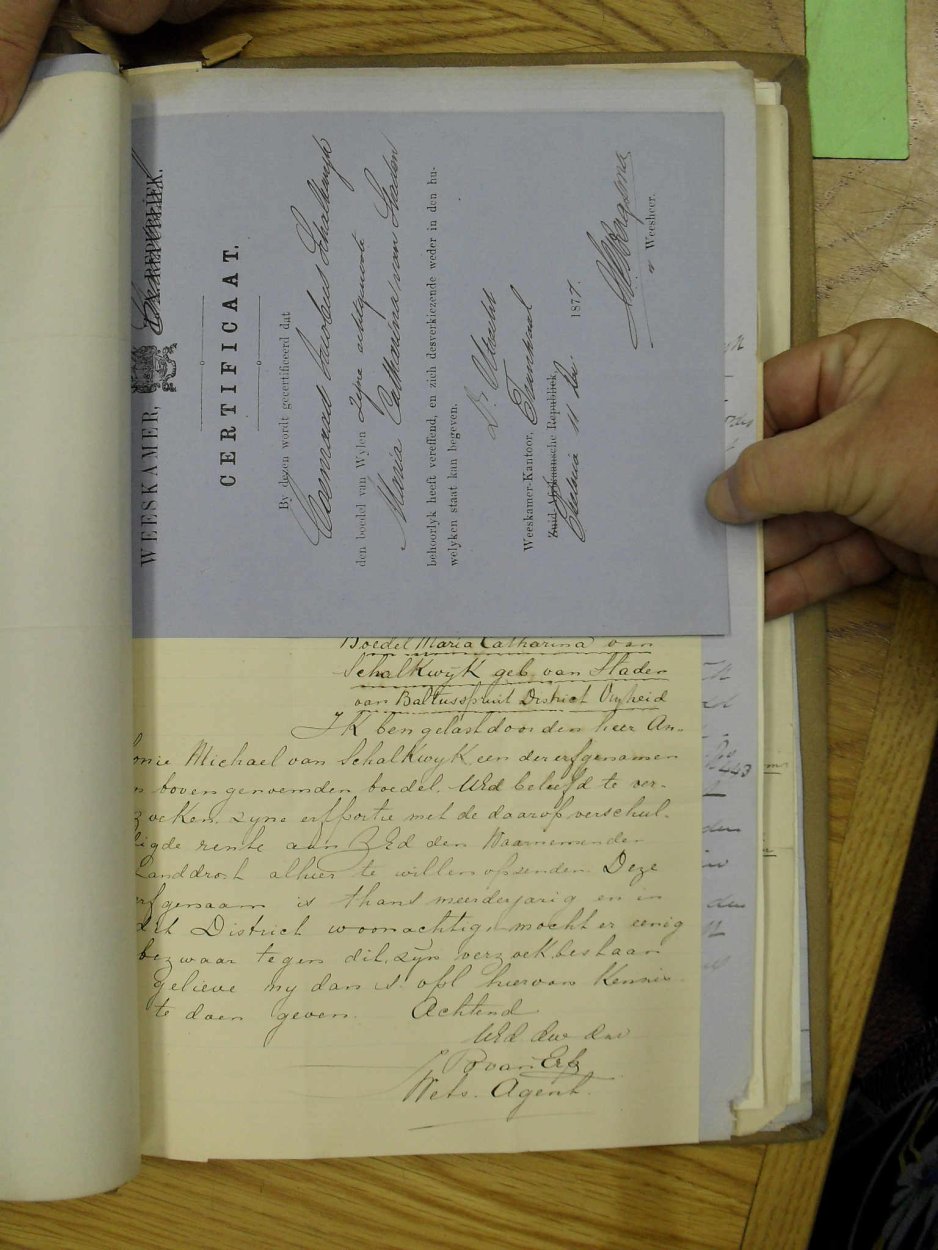 WEESKAMER, ZA REPUBLIEK.
CERTIFICAAT.
By dezen wordt gecertificeerd dat
Coenraad Jacobus Schalkwyk
den boedel van Wylen zyne echtgenoote
Maria Catharina van Staden
behoorlyk heeft vereffend, en zich desverkiezende weder in den hu-
welyken staat kan begeven.
Dt. Utrecht
Weeskamer-Kantoor,
Zuid Afrikaansche Republiek,
11 1877.
Weesheer.
Boedel Maria Catharina van
Schalkwÿk geb. van Staden
van Baltusspruit District Vryheid
Ik ben gelast door den heer An-
onie Michael van Schalkwyk een der erfgenamen
n bovengenoemden boedel. UEd beleefd te ver-
zoeken, zyne erfportie met de daarop verschul-
digde rente aan ZEd den Waarnemenden
Landdrost alhier te willen opzenden. Deze
erfgenaam is thans meerderjarig en in
dit District woonachtig, mocht er eenig
bezwaar tegen dit zyn verzoek bestaan
gelieve my dan s.v.pl hiervan kennis
te doen geven. Achtend
UEd dw dnr
P van Erk
Wets. Agent.
443